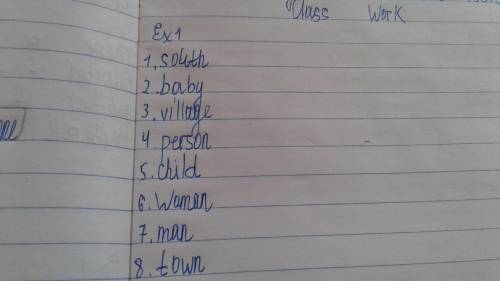 Class Work
Ex1
1. south
2. baby
3. village
4 person
5. child
6. Woman
7. man
8. town